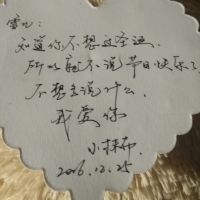 雪儿：
知道你不想过圣诞，
所以就不说节日快乐了
不想多说什么，
我爱你
小抹布
2016.12.25